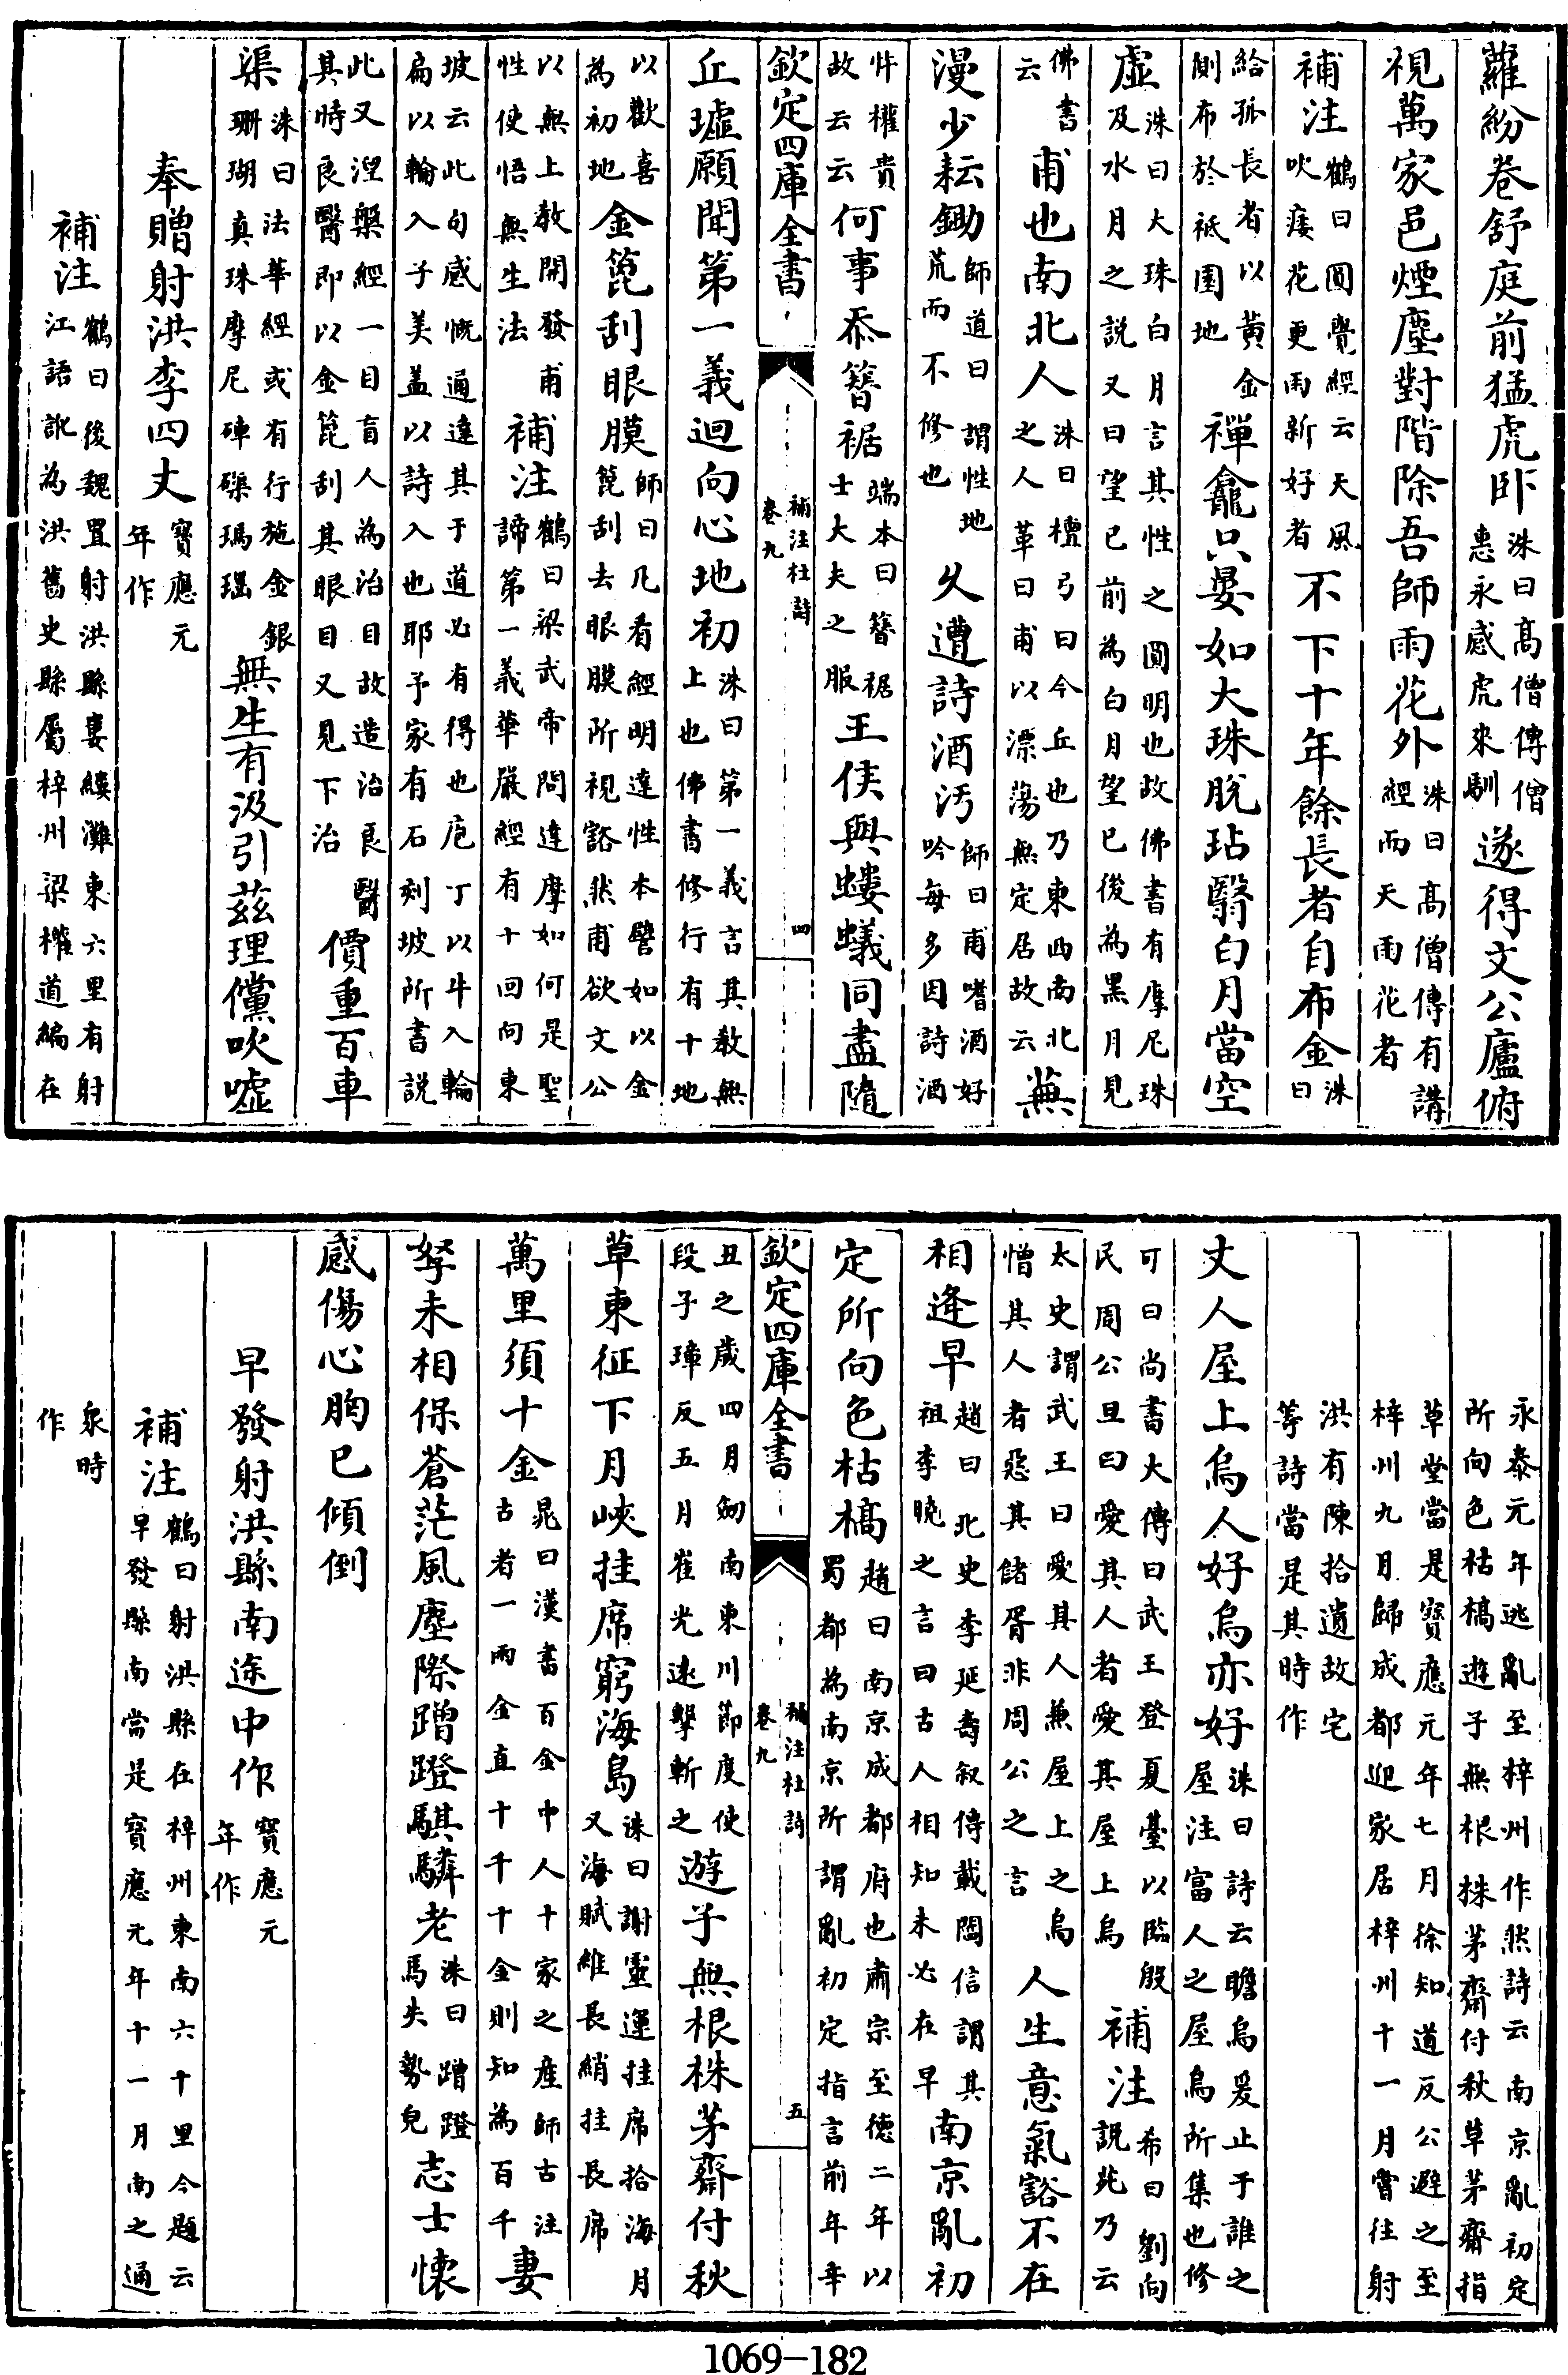 蘿紛卷舒庭前猛虎卧洙曰高僧傳僧惠永感虎來馴遂得文公廬俯
視萬家邑煙塵對階除吾師雨花外洙曰高僧傳有講經而天雨花者
補注鶴曰圓覺經云天風吹瘘花更雨新好者不下十年餘長者自布金洙曰
給孤長者以黄金側布於祗園地禪龕只晏如大珠脱玷翳白月當空
虛洙曰大珠白月言其性之圓明也故佛書有摩尼珠及水月之説又曰望已前為白月望已後為黑月見
佛書云甫也南北人洙曰檀弓曰今丘也乃東西南北之人革曰甫以漂蕩無定居故云蕪
漫少耘鋤師道曰謂性地荒而不修也久遭詩酒汚師曰甫嗜酒好吟每多因詩酒
忤權貴故云云何事忝簪裾端本曰簪裾士大夫之服王侯與螻蟻同盡隨
欽定四庫全書 補注杜詩 卷九 四
丘墟願聞第一義迴向心地初洙曰第一義言其教無上也佛書修行有十地
以歡喜為初地金箆刮眼膜師曰凡看經明達性本譬如以金箆刮去眼膜所視豁然甫欲文公
以無上教開發甫性使悟無生法補注鶴曰梁武帝問達摩如何是聖諦第一義華嚴經有十回向東
坡云此句感慨通達其于道必有得也庖丁以牛入輪扁以輪入子美盖以詩入也耶予家有石刻坡所書説
此又湼槃經一目盲人為治目故造治良醫其時良醫即以金箆刮其眼目又見下治價重百車
渠洙曰法華經或有行施金銀珊瑚真珠摩尼硨磲瑪瑙無生有汲引茲理儻吹噓
奉贈射洪李四丈寶應元年作
補注鶴曰後魏置射洪縣婁縷灘東六里有射江語訛為洪舊史縣屬梓州梁權道編在
永泰元年逃亂至梓州作然詩云南京亂初定所向色枯槁遊子無根株茅齋付秋草茅齋指
草堂當是寶應元年七月徐知道反公避之至梓州九月歸成都迎家居梓州十一月嘗往射
洪有陳拾遺故宅等詩當是其時作
丈人屋上烏人好烏亦好洙曰詩云瞻烏爰止于誰之屋注富人之屋烏所集也修
可曰尚書大傳曰武王登夏臺以臨殷民周公旦曰愛其人者愛其屋上烏補注希曰劉向説苑乃云
太史謂武王曰愛其人兼屋上之烏憎其人者惡其儲胥非周公之言人生意氣豁不在
相逢早趙曰北史李延壽叙傳載閻信謂其祖李曉之言曰古人相知未必在早南京亂初
定所向色枯槁趙曰南京成都府也肅宗至徳二年以蜀都為南京所謂亂初定指言前年辛
欽定四庫全書 補注杜詩 卷九 五
丑之歲四月劒南東川節度使段子璋反五月崔光遠擊斬之遊子無根株茅齋付秋
草東征下月峽挂席窮海島洙曰謝靈運挂席拾海月又海賦維長綃挂長席
萬里須十金晁曰漢書百金中人十家之産師古注古者一兩金直十千千十金則知為百千妻
孥未相保蒼茫風塵際蹭蹬騏驎老洙曰蹭蹬馬失勢皃志士懐
感傷心胸已傾倒
早發射洪縣南途中作寶應元年作
補注鶴曰射洪縣在梓州東南六十里今題云早發縣南當是寶應元年十一月南之通
泉時作
1069-182